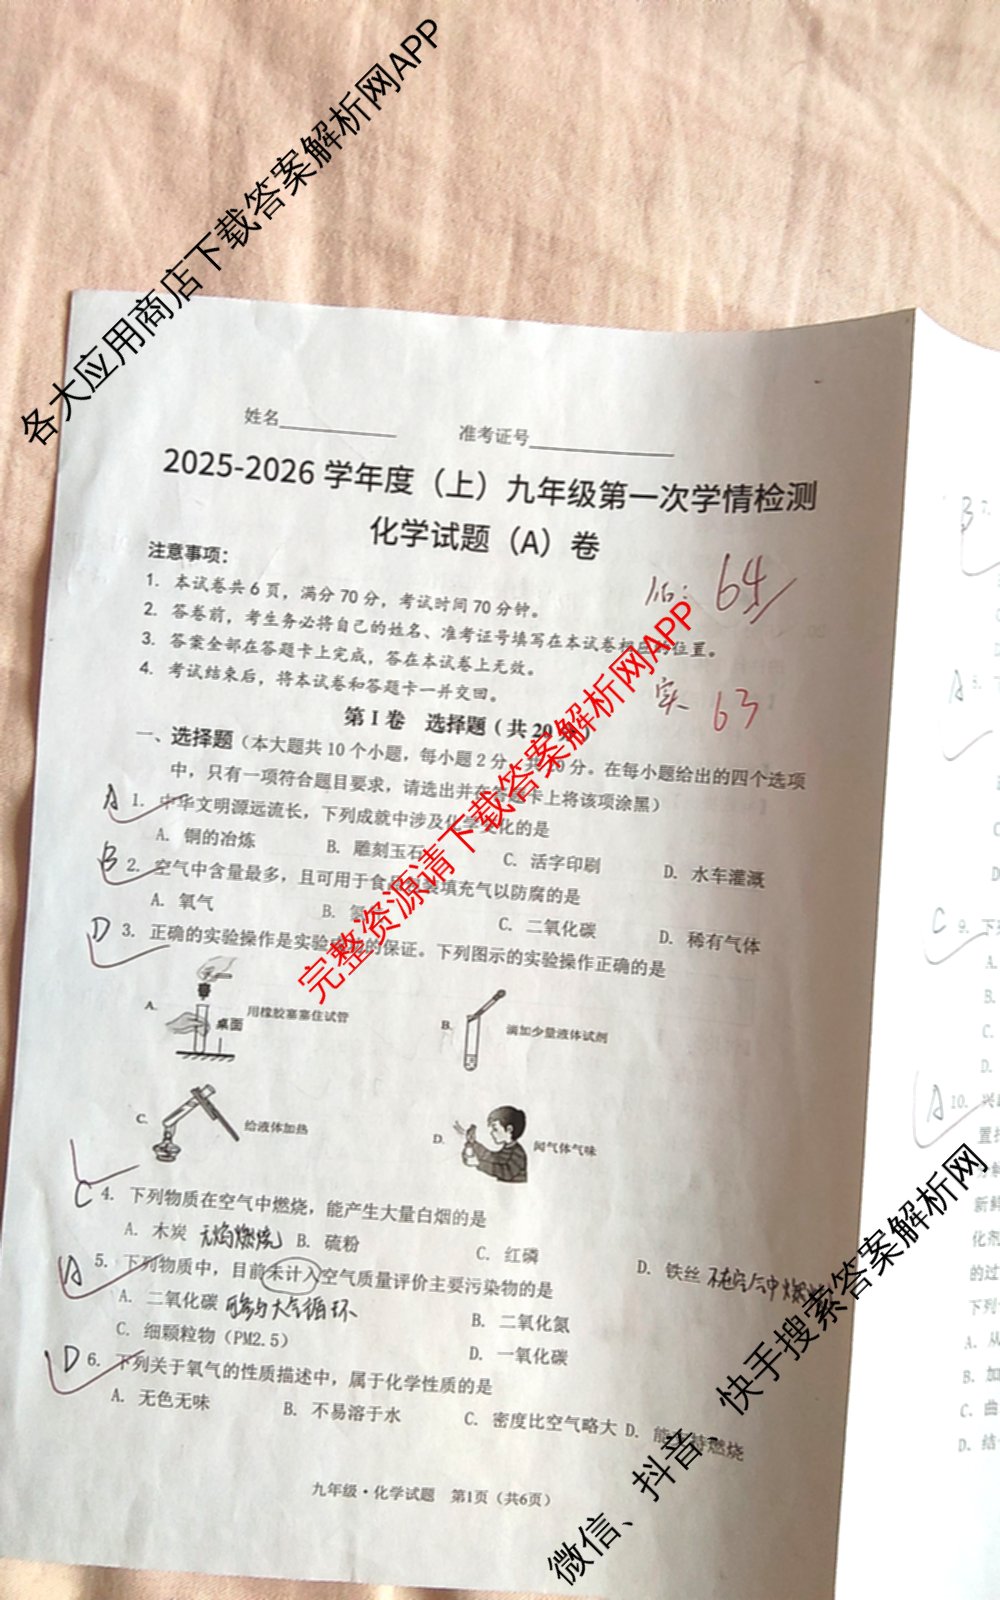 各大应用商店下载答案解析网APP
姓名
准考证号
2025-2026 学年度（上）九年级第一次学情检测
化学试题（A）卷
注意事项：
1. 本试卷共6页，满分70分，考试时间70分钟。
2. 答卷前，考生务必将自己的姓名、准考证号填写在本试卷相应的位置。
3. 答案全部在答题卡上完成，答在本试卷上无效。
4. 考试结束后，将本试卷和答题卡一并交回。
64
实 63
完整资源请下载答案解析网APP
第Ⅰ卷 选择题（共20分）
一、选择题（本大题共10个小题，每小题2分，共20分。在每小题给出的四个选项
中，只有一项符合题目要求，请选出并在答题卡上将该项涂黑）
A 1. 中华文明源远流长，下列成就中涉及化学变化的是
A. 铜的冶炼 B. 雕刻玉石 C. 活字印刷 D. 水车灌溉
B 2. 空气中含量最多，且可用于食品包装填充气以防腐的是
A. 氧气 B. 氮 C. 二氧化碳 D. 稀有气体
D 3. 正确的实验操作是实验成功的保证。下列图示的实验操作正确的是
A. 用橡胶塞塞住试管 桌面
B. 滴加少量液体试剂
C. 给液体加热
D. 闻气体气味
C 4. 下列物质在空气中燃烧，能产生大量白烟的是
A. 木炭 无焰燃烧 B. 硫粉 C. 红磷 D. 铁丝 不在空气中燃烧
A 5. 下列物质中，目前未计入空气质量评价主要污染物的是
A. 二氧化碳 可参与大气循环 B. 二氧化氮
C. 细颗粒物（PM2.5） D. 一氧化碳
D 6. 下列关于氧气的性质描述中，属于化学性质的是
A. 无色无味 B. 不易溶于水 C. 密度比空气略大 D. 能支持燃烧
九年级·化学试题 第1页（共6页）
微信、抖音、快手搜索答案解析网
B 7.
A 8.
C 9. 下
A.
B.
C.
D.
A 10. 兴
置
新鲜
化剂
的过
下列
A. 从
B. 加
C. 曲
D. 结